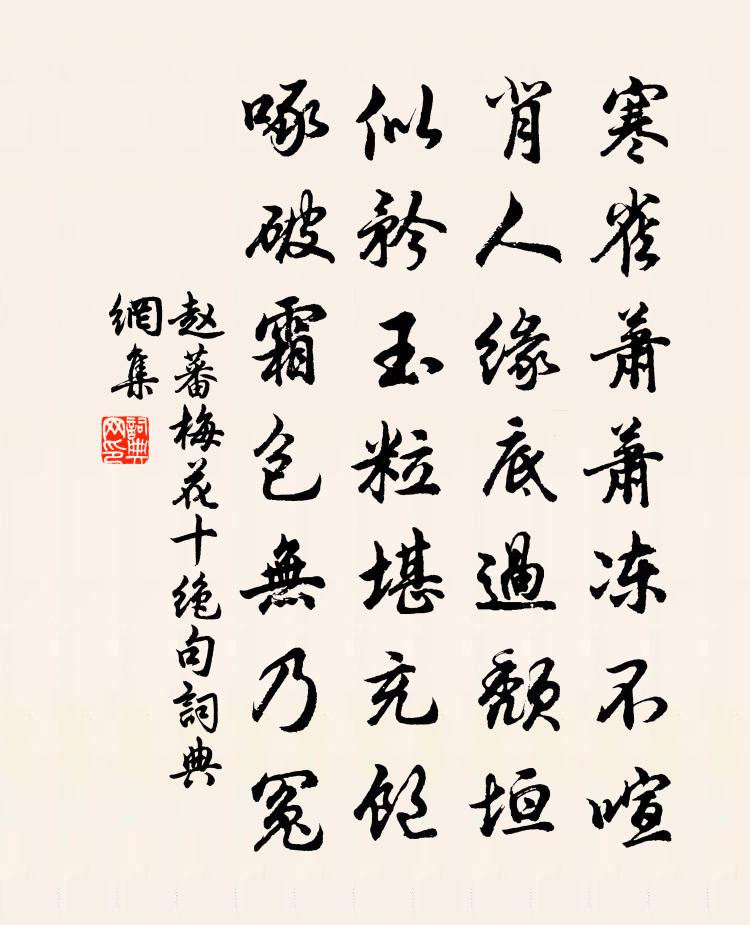 寒雀萧萧冻不喧
背人缘底過颓垣
似矜玉粒堪充饱
啄破霜包無乃冤
赵蕃梅花十绝句詞典
網集
詞典網印